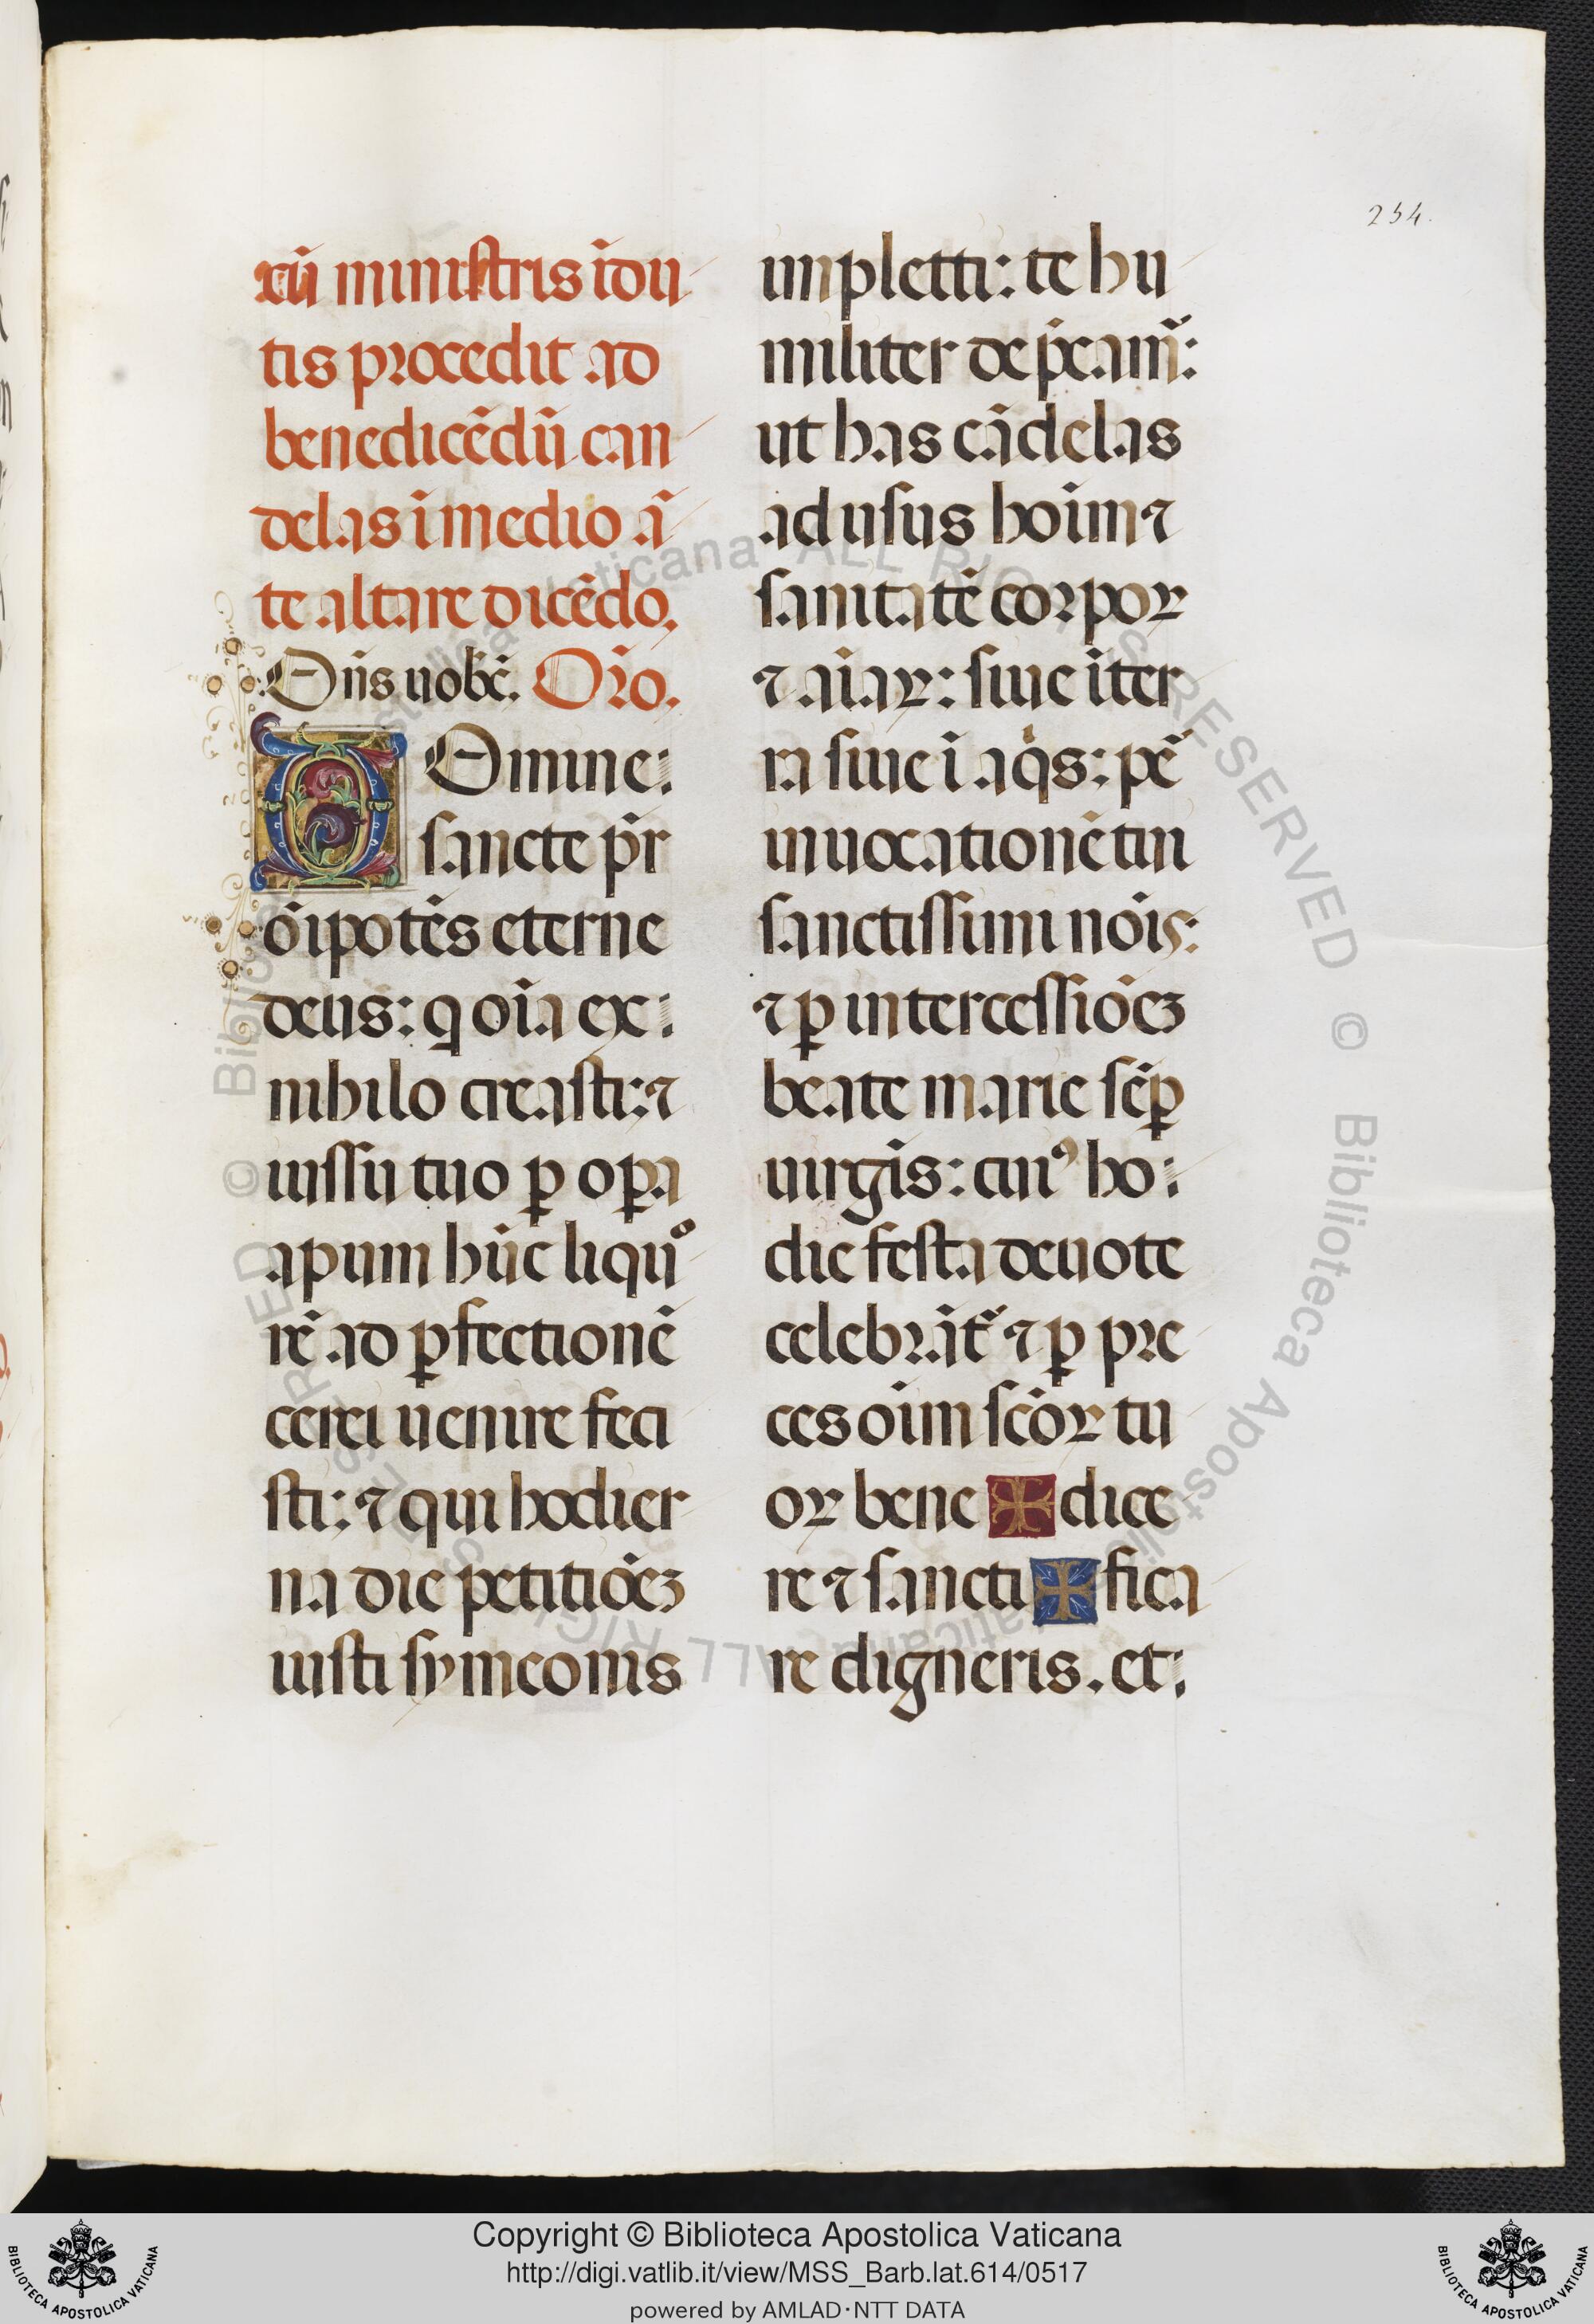 254.
cū ministris īdu
tis procedit ad
benedicēdū can
delas ī medio ā
te altare dicēdo.
Dn̄s uobc̄. Or̄o.
DOmine:
sancte pr̄
oīpotēs eterne
deus: q oīa ex:
nihilo creasti: ⁊
iussu tuo ꝑ oꝑa
apum hūc liquo
rē ad ꝑfectionē
cerei uenire feci
sti: ⁊ qui hodier
na die petitiōeꝫ
iusti symeonis
impletti: te hu
militer dep̄cam̄:
ut has cādelas
ad usus hoīm ⁊
sanitatē corpoꝝ
⁊ aīaꝝ: siue ī ter
ra siue ī aqͥs: pē
inuocationē tui
sanctissimi nōis:
⁊ ꝑ intercessiōeꝫ
beate marie sēꝑ
uirgīs: cuiꝰ ho:
die festa deuote
celebrāt̄ ⁊ ꝑ pre
ces oīm scōꝝ tu
oꝝ bene ✠ dice
re ⁊ sancti ✠ fica
re digneris. et:
© Biblioteca Apostolica Vaticana ALL RIGHTS RESERVED © Biblioteca Apostolica Vaticana ALL RIGHTS RESERVED
Copyright © Biblioteca Apostolica Vaticana
http://digi.vatlib.it/view/MSS_Barb.lat.614/0517
powered by AMLAD·NTT DATA
BIBLIOTECA APOSTOLICA VATICANA
BIBLIOTECA APOSTOLICA VATICANA